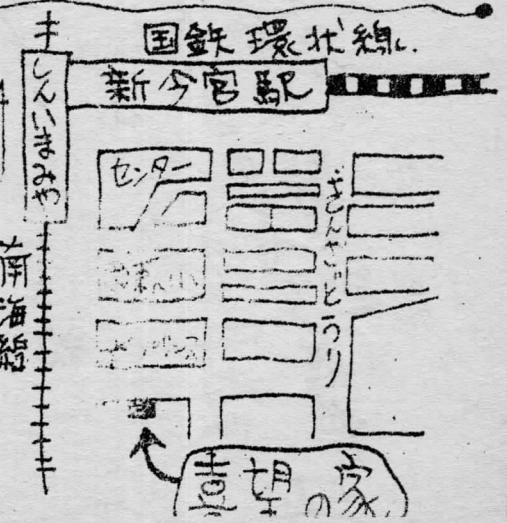 国鉄環状線.
新今宮駅
しんいまみや
センター
ぎんざどうり
南海線
喜望の家